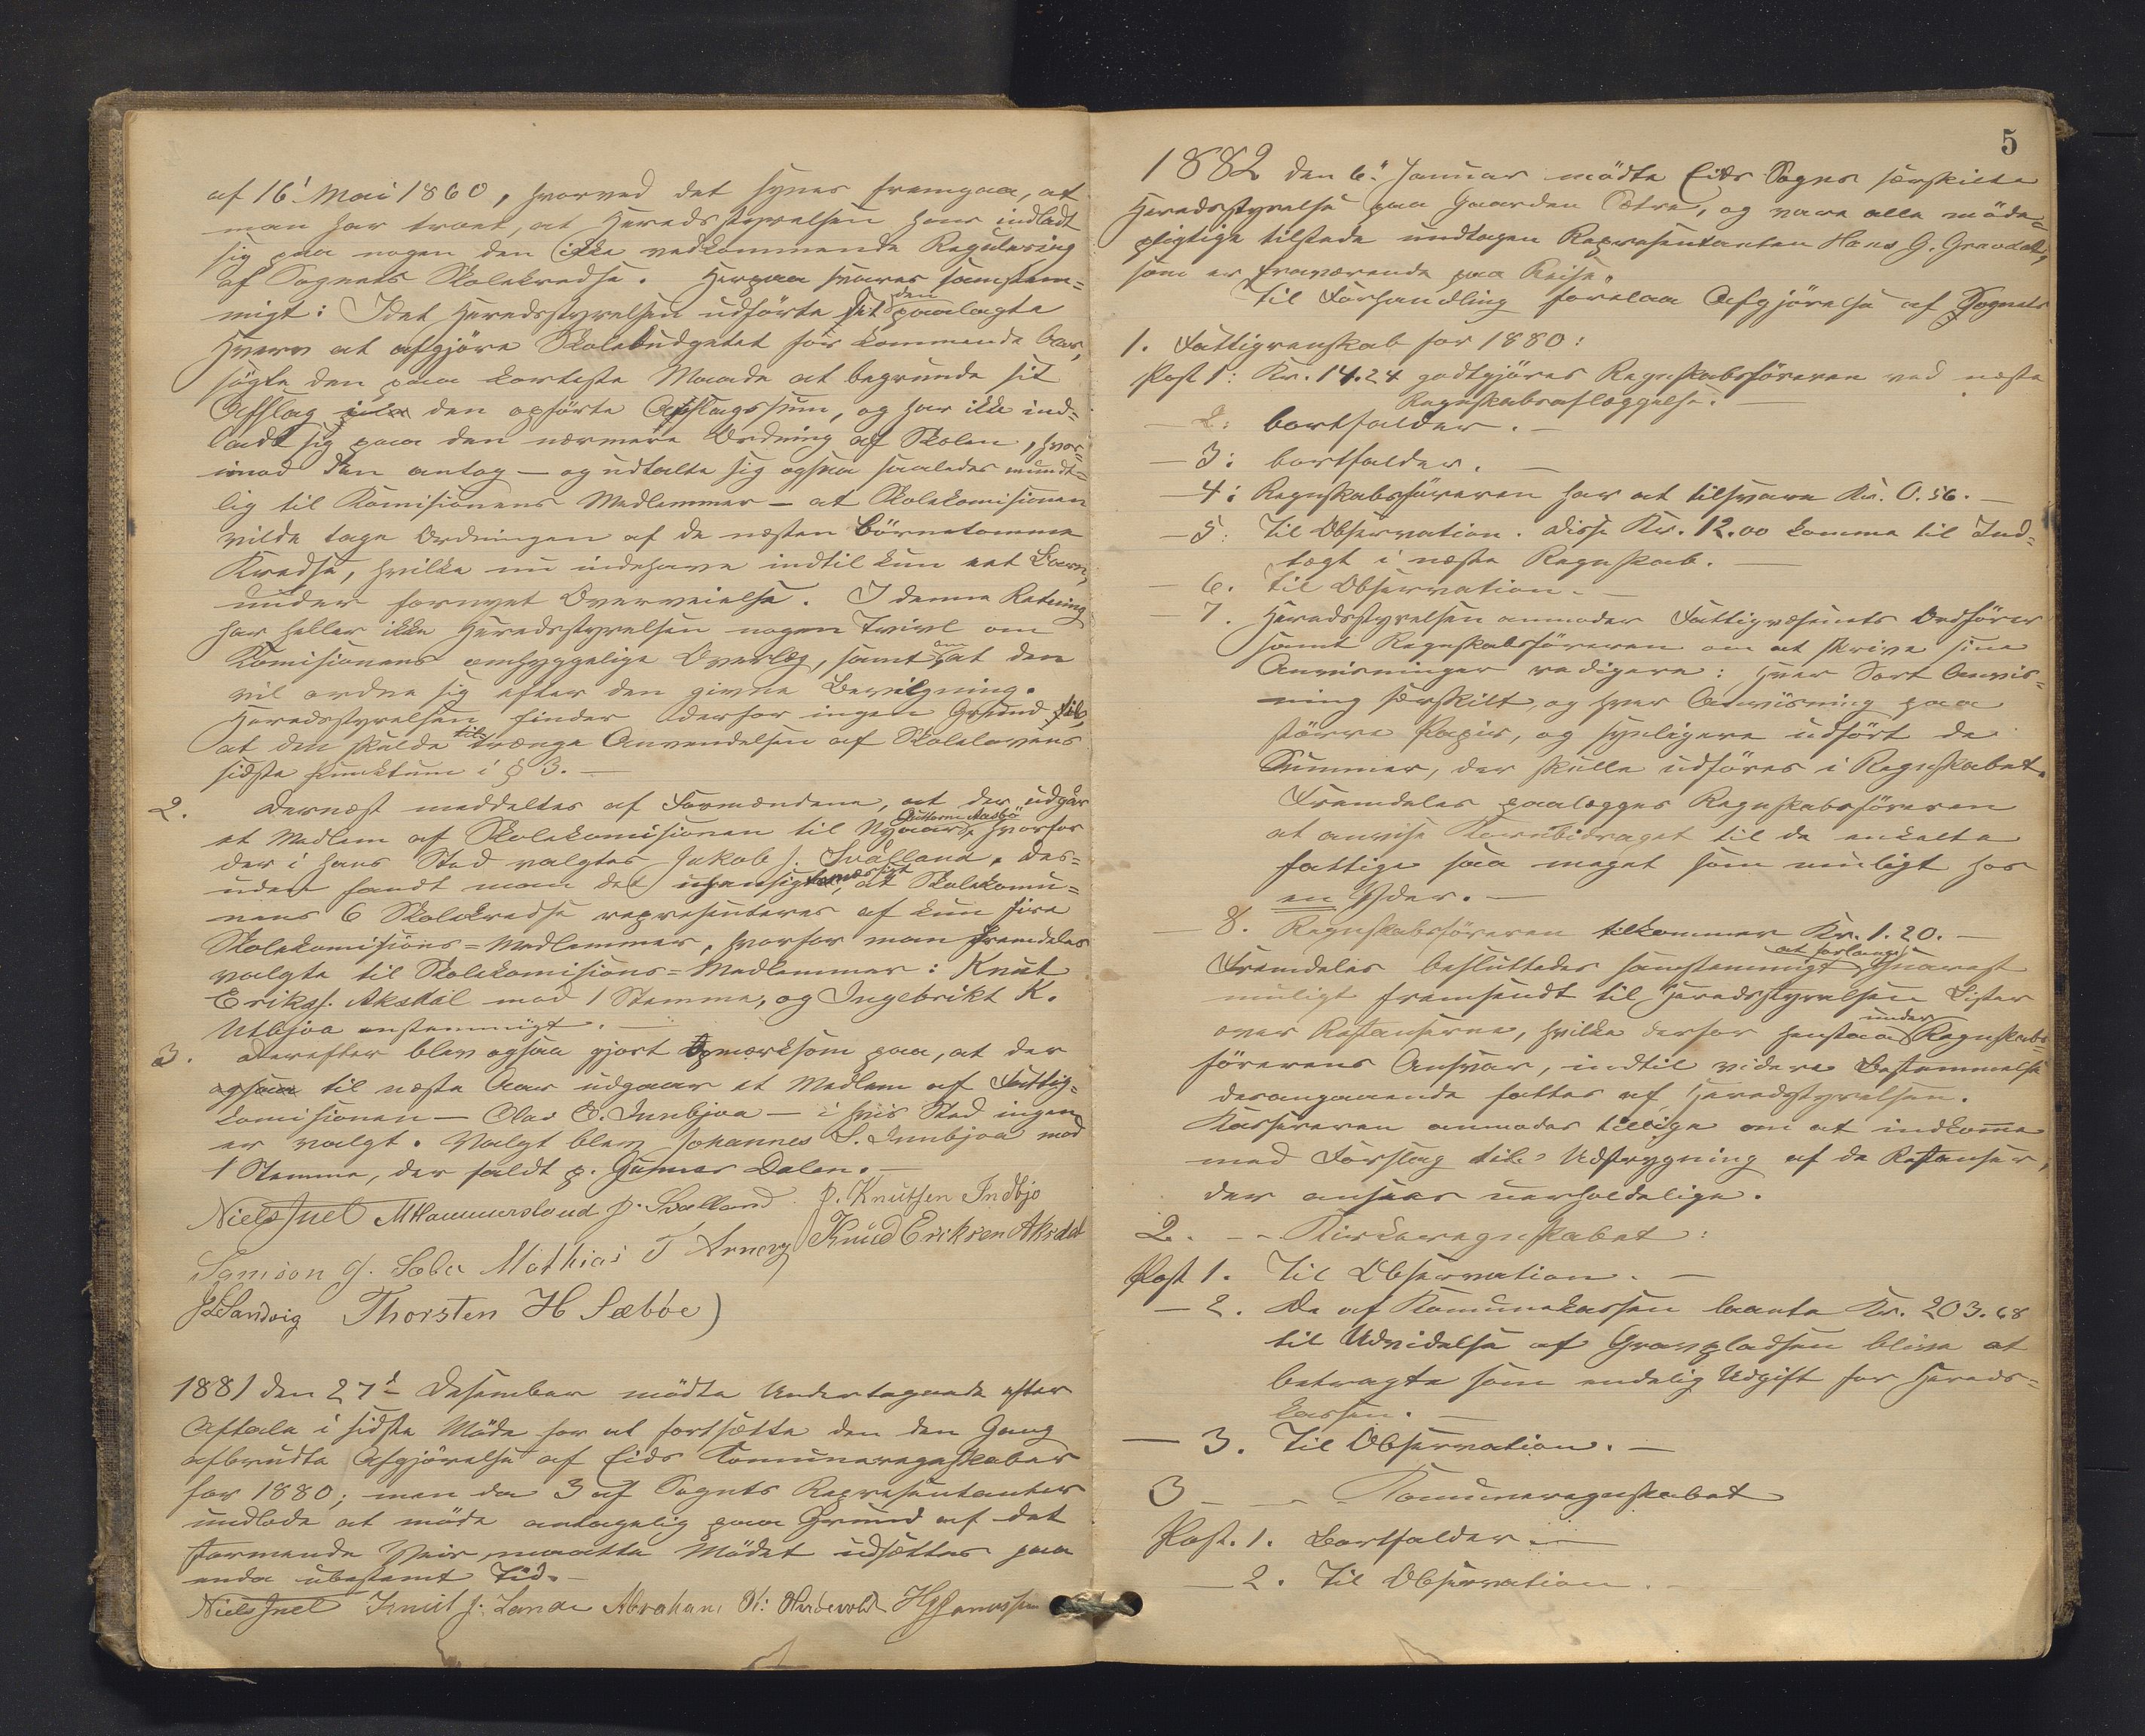 af 16' Mai 1860, hvorved det synes fremgaa, at
man har troet, at Heredsstyrelsen har indladt
sig paa nogen den ikke vedkommende Regulering
af Sognets Skolekredse. Herpaa svares samstem=
migt: Idet Heredsstyrelsen udførte det den paalagte
Hverv at afgjöre Skolebudgetet for kommende Aar,
søgte den paa korteste Maade at begrunde sit
Afslag i den opførte Afslagssum, og har ikke ind=
ladt sig paa den nærmere Ordning af Skolen, hvor=
imod den antog — og udtalte sig ogsaa saaledes mundt=
lig til Komisionens Medlemmer — at Skolekomisionen
vilde tage Ordningen af de næsten børnetomme
Kredse, hvilke nu indehave indtil kun eet Barn,
under fornyet Overveielse. I denne Retning
har heller ikke Heredsstyrelsen nogen Tvivl om
Komisionens omhyggelige Overlæg, samt om at den
vil ordne sig efter den givne Bevilgning.
Heredsstyrelsen finder derfor ingen Grund til,
at den skulde tiltrænge Anvendelsen af Skolelovens
sidste Punktum i § 3. —
2. Dernæst meddeltes af Formændene, at der udgår
et Medlem af Skolekomisionen til Nyaar Guttorm Aasbö hvorfor
der i hans Sted valgtes Jakob J. Svålland. Des=
uden fandt man det uhensigtsmæssigt, at Skolekomu=
nens 6 Skolekredse representeres af kun fire
Skolekomisions=Medlemmer, hvorfor man fremdeles
valgte til Skolekomisions=Medlemmer: Knut
Eriks. Aksdal med 1 Stemme, og Ingebrikt K.
Utbjoa enstemmigt. —
3. Derefter blev ogsaa gjort opmærksom paa, at der
ogsaa til næste Aar udgaar et Medlem af Fattig=
komisionen — Olav E. Innbjoa — i hvis Sted ingen
er valgt. Valgt blev Johannes S. Innbjoa mod
1 Stemme, der faldt p. Gunnar Dalen. —
Niels Juel MHammersland J. Svalland P. Knutsen Indbjo
Samson J. Sæbø Mathias T Arnevg Knud Eriksen Aksdal
Sandvig Thorsten H Sæböe
1881 den 27d Desember mødte Undertegnede efter
Aftale i sidste Møde for at fortsætte den den Gang
afbrudte Afgjörelse af Eids Komuneregnskaber
for 1880; men da 3 af Sognets Representanter
undlode at møde antagelig paa Grund af det
stormende Veir, maatte Mødet udsættes paa
enda ubestemt Tid. —
Niels Juel Knut J. Lande Abraham K:
5
1882 den 6. Januar mødte Eids Sogns særskilte
Heredsstyrelse paa Gaarden Sætre, og vare alle møde=
pligtige tilstede undtagen Representanten Hans G. Gravdal,
som er fraværende paa Reise.
Til Forhandling forelaa Afgjörelse af Sognets
1. Fattigrenskab for 1880:
Post 1: Kr. 14.24 godtgjøres Regnskabsføreren ved næste
Regnskabsaflæggelse. —
— 2: bortfalder. —
— 3: bortfalder. —
— 4: Regnskabsføreren har at tilsvare Kr. 0.56. —
— 5: Til Observation. Disse Kr. 12.00 komme til Ind=
tægt i næste Regnskab. —
— 6. Til Observation. —
— 7. Heredsstyrelsen anmoder Fattigvæsenets Ordfører
samt Regnskabsføreren om at skrive sine
Anvisninger redigere: hver Sort Anvis=
ning særskilt, og hver Anvisning paa
större Papir, og synligere udført de
Summer, der skulle udføres i Regnskabet.
Fremdeles paalægges Regnskabsføreren
at anvise Kornbidraget til de enkelte
fattige saa meget som muligt hos
en Yder. —
— 8. Regnskabsføreren tilkommer Kr. 1.20. —
Fremdeles besluttedes samstemmigt at forlange snarest
muligt fremsendt til Heredsstyrelsen Lister
over Restanserne, hvilke derfor henstaa under Regnskabs=
førerens Ansvar, indtil videre Bestemmelse
desangaaende fattes af Heredsstyrelsen.
Kassereren anmodes tillige om at indkome
med Forslag til Udstrygning af de Restanser,
der ansees uerholdelige.
2. — — Kirkeregnskabet:
Post 1. Til Observation. —
— 2. De af Komunekassen laante Kr. 203.68
til Udvidelse af Gravpladsen blive at
betragte som endelig Udgift for Hereds=
kassen. —
— 3. Til Observation. —
3 — — Komuneregnskabet
Post. 1. Bortfalder. —
— 2. Til Observation. —